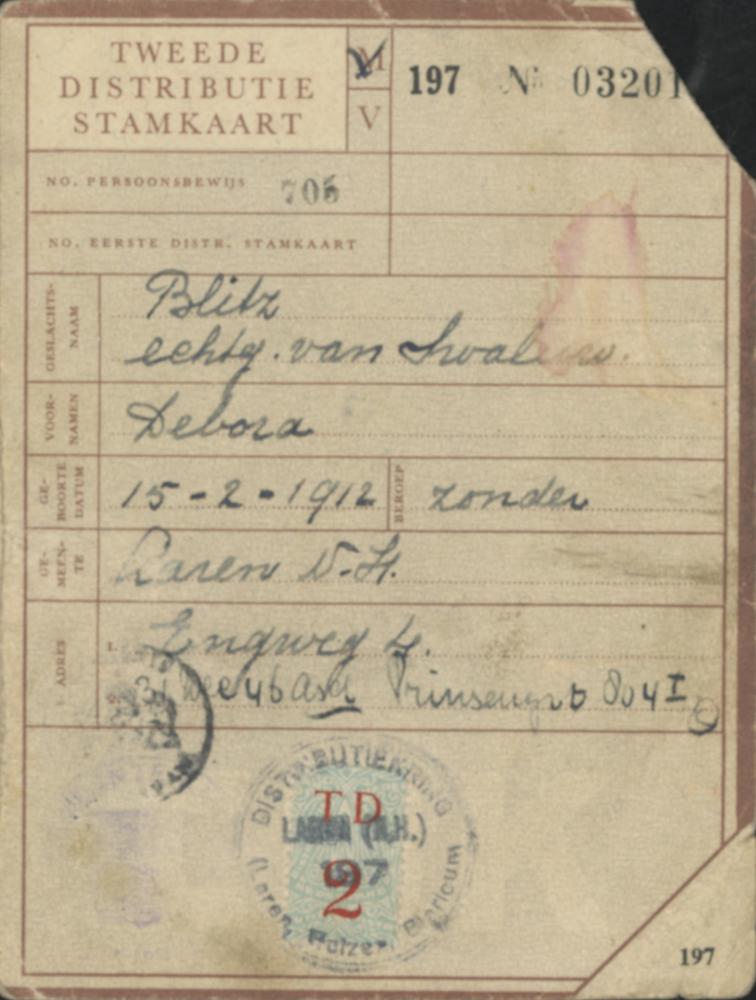 TWEEDE
DISTRIBUTIE
STAMKAART
M
V
197 No 03201
NO. PERSOONSBEWIJS 705
NO. EERSTE DISTR. STAMKAART
GESLACHTS-
NAAM
Blitz
echtg. van
VOOR-
NAMEN
Debora
GE-
BOORTE
DATUM
15-2-1912
BEROEP
zonder
GE-
MEEN-
TE
Laren N.-H.
ADRES
1. Engweg 4.
Prinsengr 804 I
DISTRIBUTIEKRING
TD
LAREN (N.H.)
197
2
(Laren, Huizen, Blaricum)
197